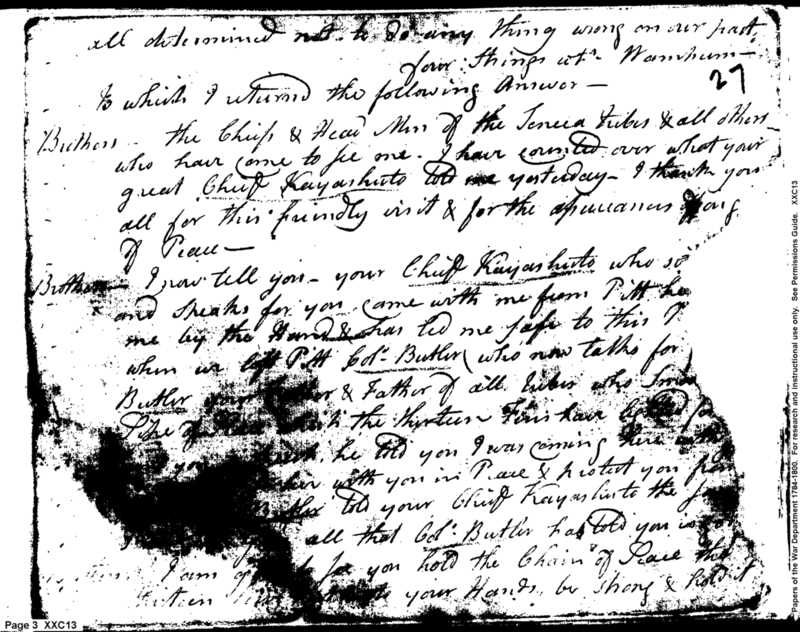 all determined not to do any thing wrong on our part.
four Strings of Wamhum—
27
to which I returned the following Answer—
Brothers - the Chiefs & Head Men of the Seneca tribes & all others
who have come to see me. I have counted over what your
great Chief Kayashuto told me yesterday - I thank you
all for this friendly visit & for the assurances
of Peace—
Brothers— I now tell you - your Chief Kayashuto who
and speaks for you came with me from Pitt he
me by the Hand & has led me safe to this
when we left Pitt Col. Butler (who now talks for
Butler your & Father of all tribes who Smoke
Pipe of which the thirteen Fires have
he told you I was coming here
with you in Peace & protect you from
Butler told your Chief Kayashuto the
all that Col. Butler has told you is
I am you hold the Chain of Peace the
thirteen your Hands, be strong & hold it
Page 3 XXC13
Papers of the War Department 1784-1800. For research and instructional use only. See Permissions Guide. XXC13